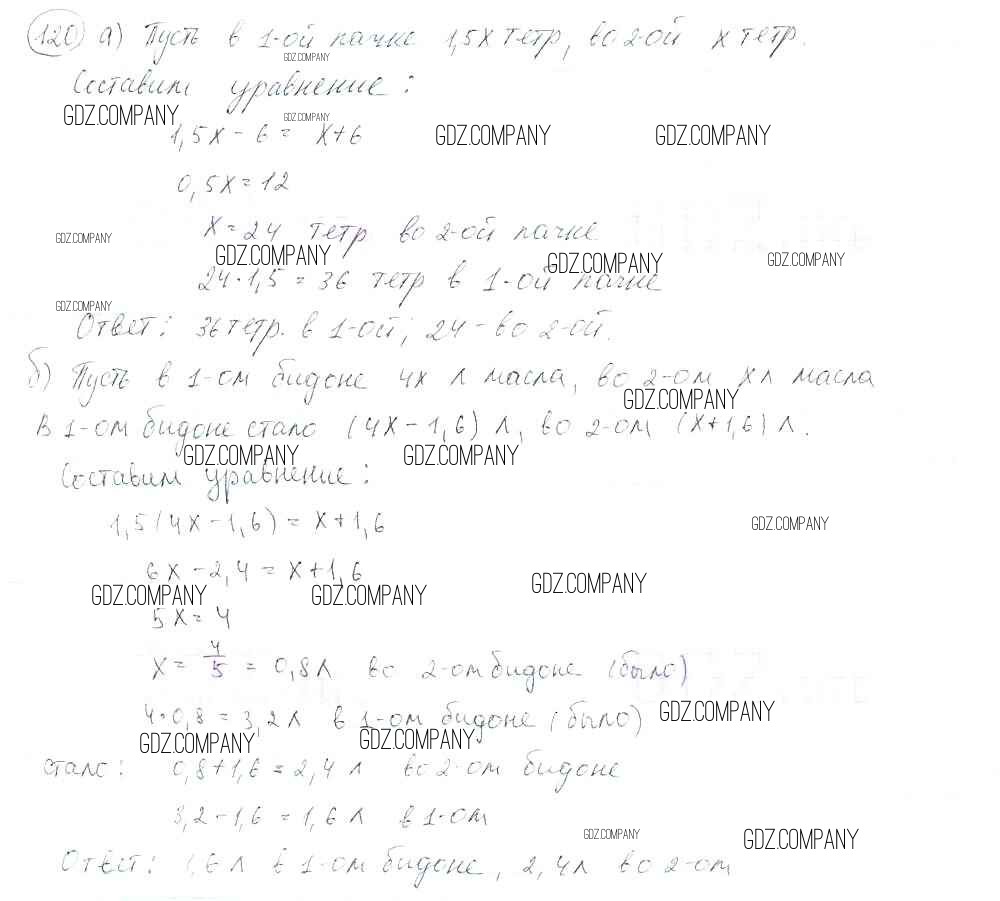 120 а) Пусть в 1-ой пачке 1,5х тетр, во 2-ой х тетр.
GDZ.COMPANY
Составим уравнение:
GDZ.COMPANY GDZ.COMPANY
1,5х - 6 = х+6 GDZ.COMPANY GDZ.COMPANY
0,5х = 12
х = 24 тетр во 2-ой пачке
GDZ.COMPANY GDZ.COMPANY GDZ.COMPANY GDZ.COMPANY
24·1,5 = 36 тетр в 1-ой пачке
GDZ.COMPANY
Ответ: 36 тетр. в 1-ой; 24 - во 2-ой.
б) Пусть в 1-ом бидоне 4х л масла, во 2-ом х л масла
GDZ.COMPANY
В 1-ом бидоне стало (4х - 1,6) л, во 2-ом (х+1,6) л.
GDZ.COMPANY GDZ.COMPANY
Составим уравнение:
1,5(4х - 1,6) = х + 1,6 GDZ.COMPANY
6х - 2,4 = х+1,6
GDZ.COMPANY GDZ.COMPANY GDZ.COMPANY
5х = 4
х = 4/5 = 0,8 л во 2-ом бидоне (было)
4·0,8 = 3,2 л в 1-ом бидоне (было) GDZ.COMPANY
GDZ.COMPANY GDZ.COMPANY
стало: 0,8+1,6 = 2,4 л во 2-ом бидоне
3,2 - 1,6 = 1,6 л в 1-ом
GDZ.COMPANY GDZ.COMPANY
Ответ: 1,6 л в 1-ом бидоне, 2,4 л во 2-ом